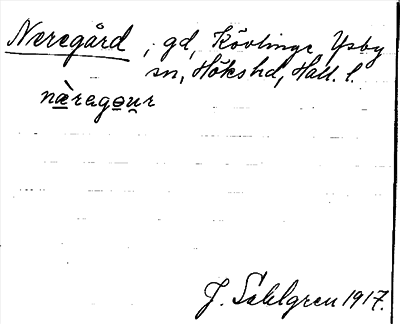 Neregård, gd, Kövlinge, Ysby
sn, Hökshd, Hall. l.
næ̀regou̯r
J. Sahlgren 1917.